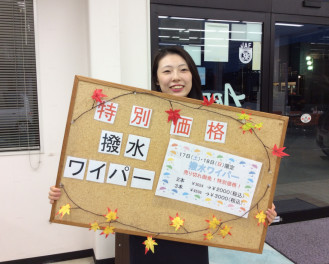 特別価格
撥水
ワイパー
17日(土)・18日(日)限定
撥水ワイパー
売り切れ御免!特別価格!
→¥2000(税込)
→¥2000(税込)
JAF